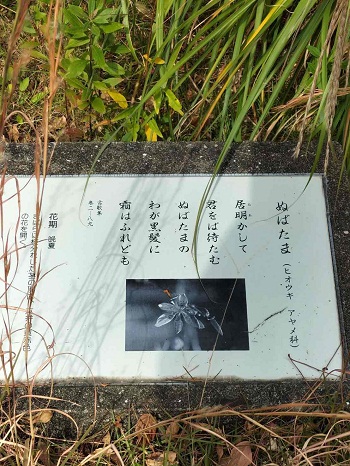 ぬばたま（ヒオウギ アヤメ科）
居明かして
君をば待たむ
ぬばたまの
わが黒髪に
霜はふれども
古歌集
巻二・八九
花期 晩夏
の花を開く